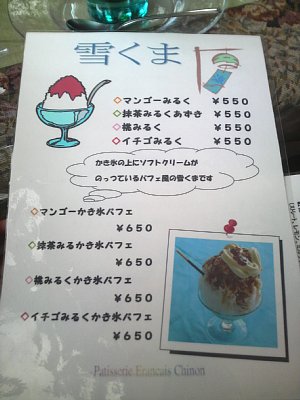 雪くま
◇マンゴーみるく ¥550
◇抹茶みるくあずき ¥550
◇桃みるく ¥550
◇イチゴみるく ¥550
かき氷の上にソフトクリームが
のっているパフェ風の雪くまです
◇マンゴーかき氷パフェ
¥650
◇抹茶みるかき氷パフェ
¥650
◇桃みるくかき氷パフェ
¥650
◇イチゴみるくかき氷パフェ
¥650
Patisserie Francais Chinon